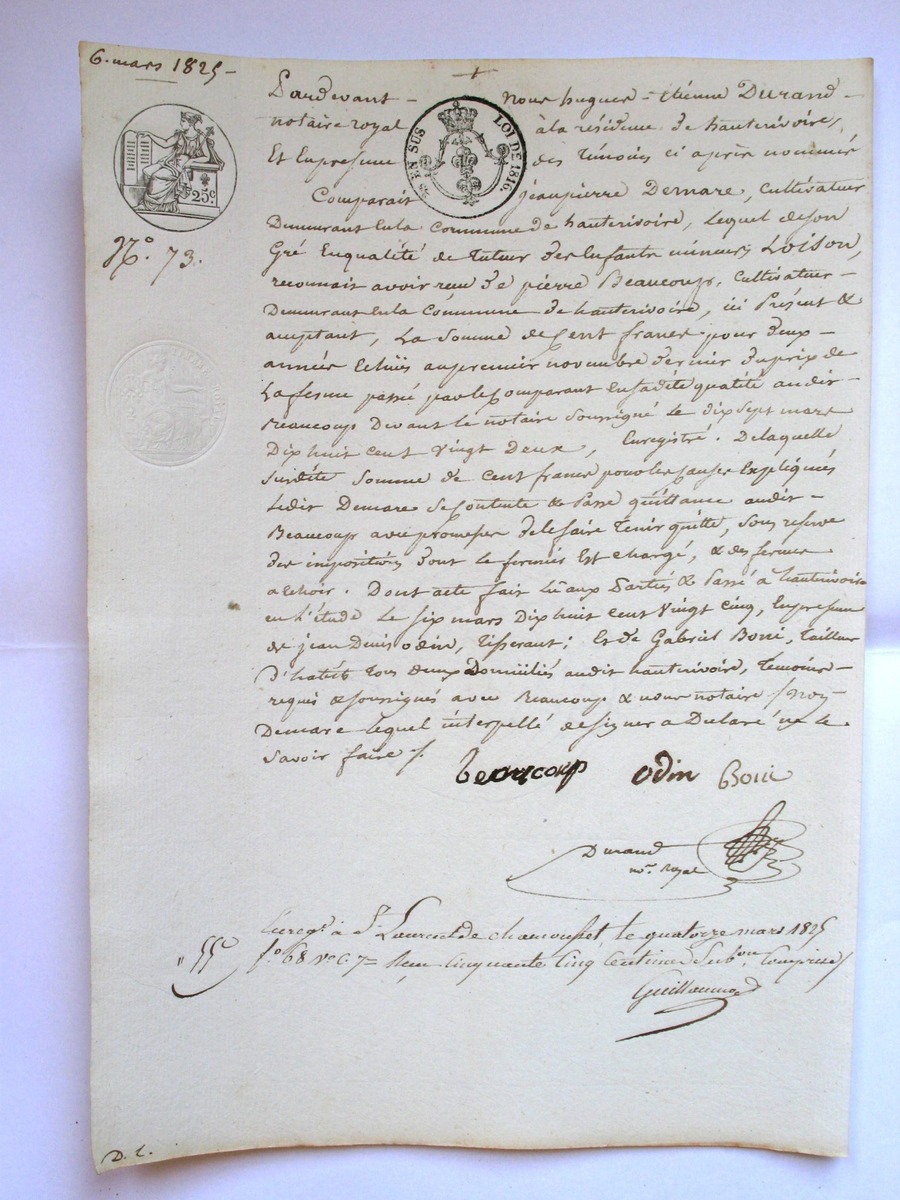 6. mars 1825 -
Pardevant - nous hugues - Etienne Durand -
notaire royal à la résidence de hauterivoire,
Et En presence des Témoins ci après nommés
EN SUS LOI DE 1816.
25c
Comparait jean pierre Demare, Cultivateur
Demeurant En la Commune de hauterivoire, Lequel de son
N.o 73.
Gré En qualité de Tuteur des Enfants mineurs Loison,
reconnait avoir reçu de pierre Beaucoup, Cultivateur -
Demeurant En la Commune de hauterivoire, ici Présent &
acceptant, La Somme de Cent francs pour deux -
années Echües au premier novembre dernier du prix de
La ferme passé par le Comparant En sadite qualité audit -
Beaucoup Devant le notaire Soussigné Le dix Sept mars
Dix huit Cent Vingt Deux, Enregistré. De laquelle
Susdite Somme de Cent francs pour les causes Expliquées
Ledit Demare se contente & Passe quittance audit -
Beaucoup avec promesse de le faire Tenir quitte, Sous réserve
des impositions dont le fermier Est chargé, & des fermes
a Echoir. Dont acte fait Lû aux Parties & Passé à hauterivoire
en L'étude Le Six mars Dix huit Cent Vingt Cinq, En presence
de jean Denis odin, Tisserant; Et de Gabriel Boni, Tailleur
D'habits Tous deux Domiiliés audit hauterivoire, Temoins -
requis & soussignés avec Beaucoup & nous notaire / non
Demare Lequel interpellé de signer a Déclaré ne le
Savoir faire /.
beaucoup odin Boni
Durand
no.re Royal
Enreg.é à S.t Laurent de chamousset, le quatorze mars 1825
" 55c
f.o 68 v.o C. 7 = Reçu Cinquante Cinq Centimes Sub.on Comprise /
Guillaumod
D. C.